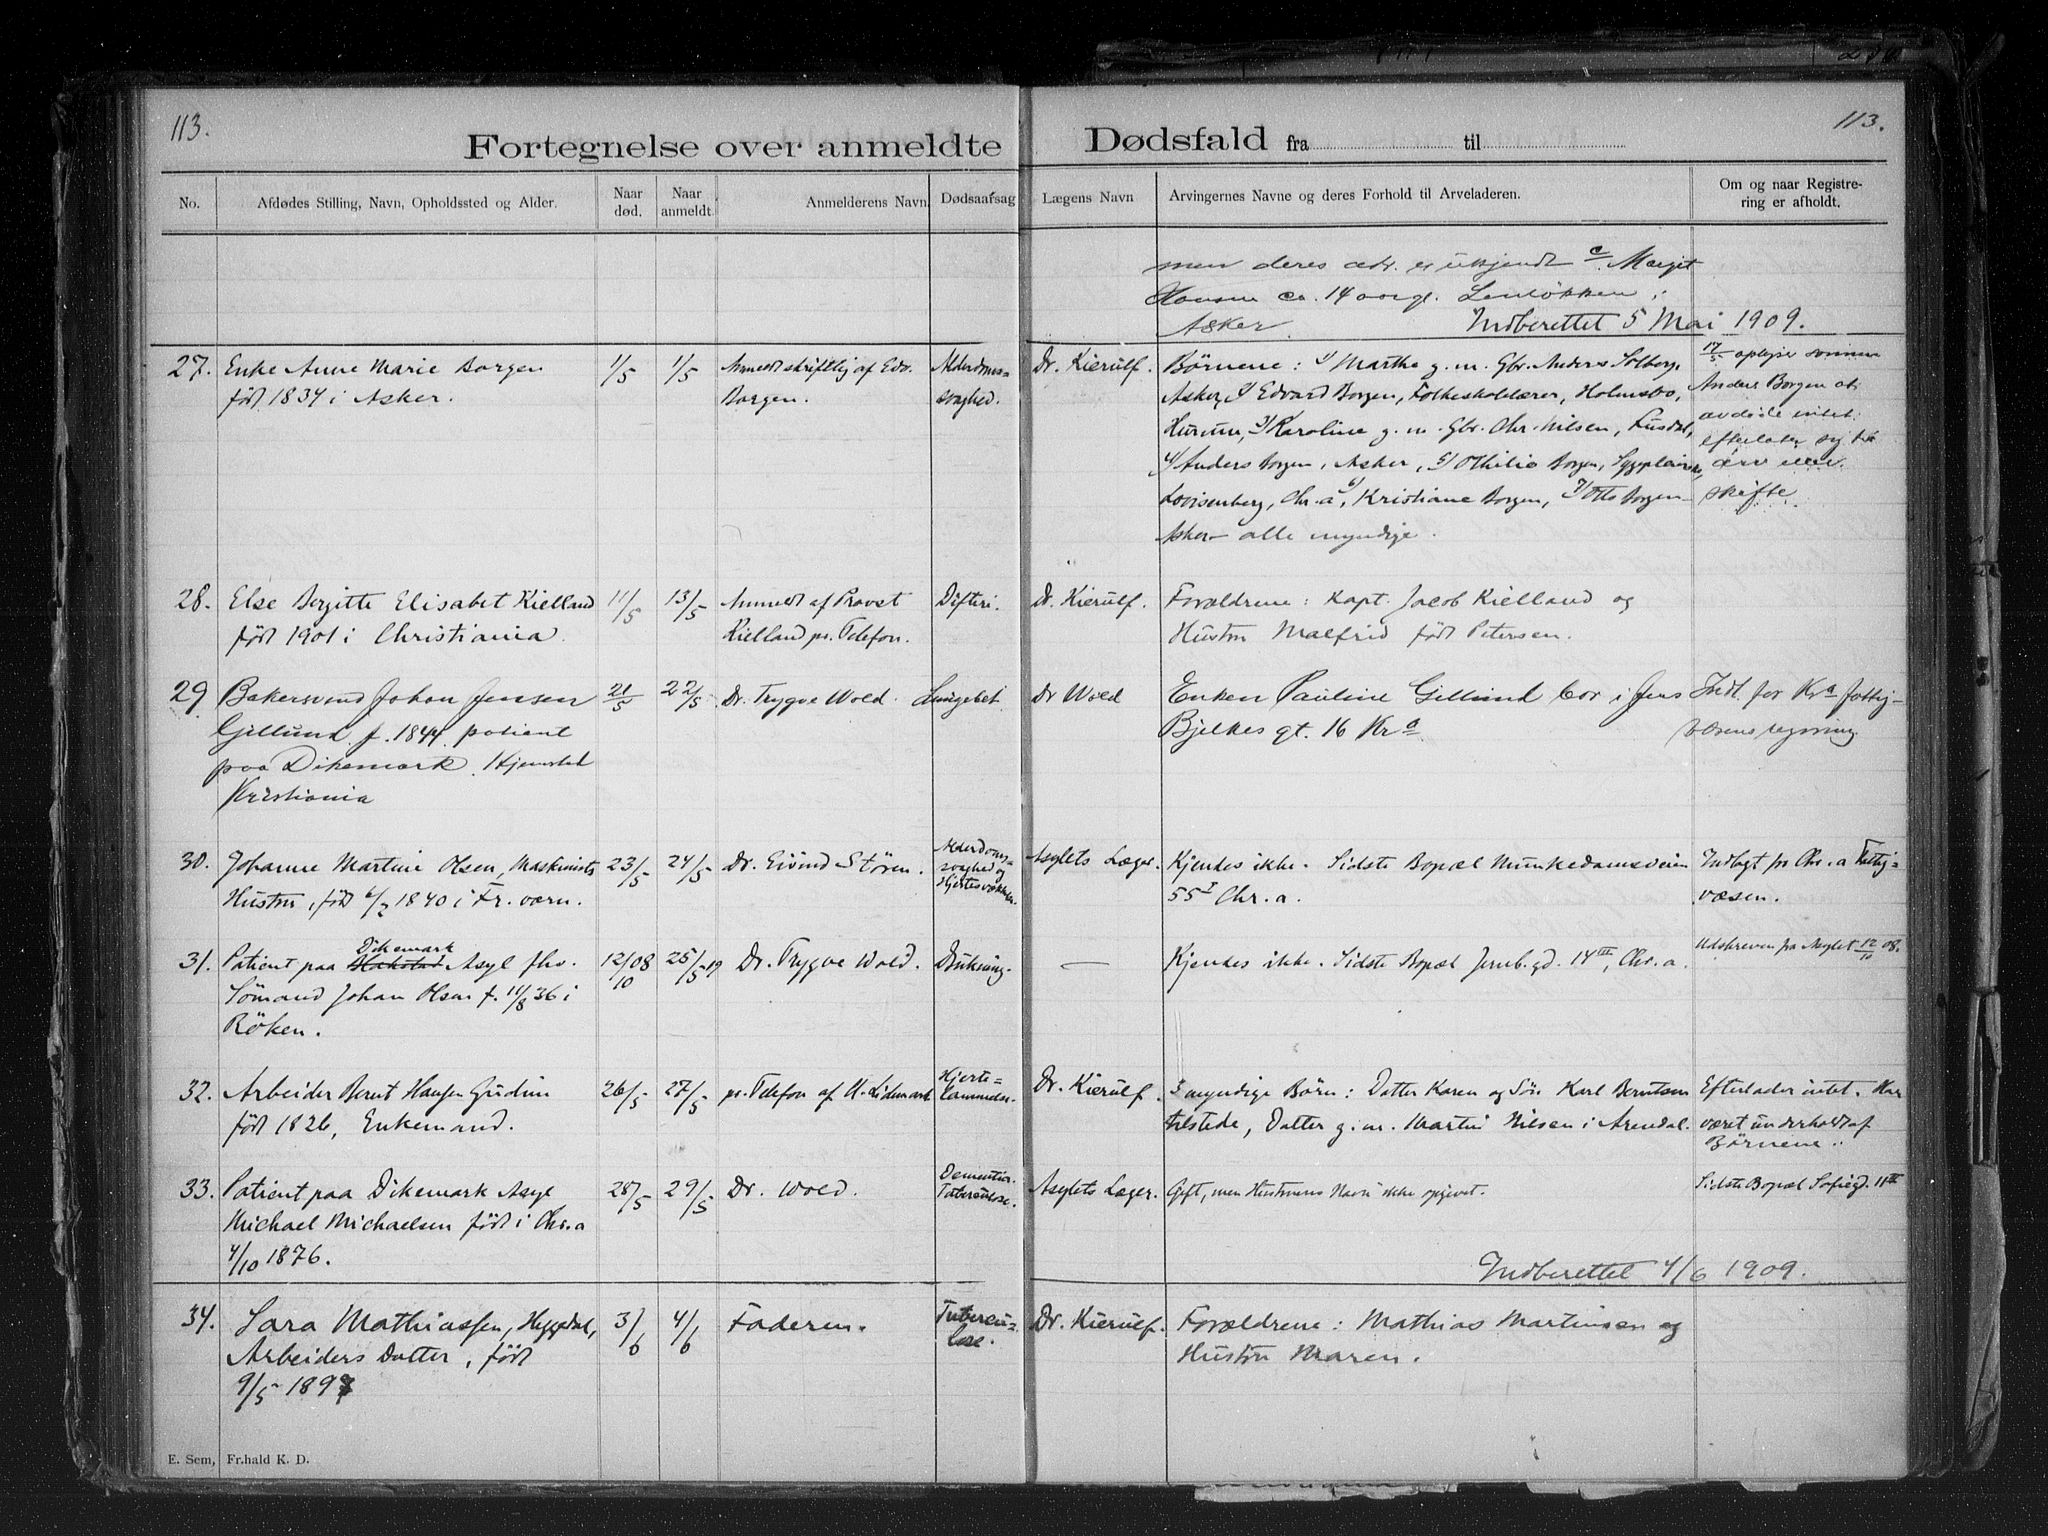 113.
113.
Fortegnelse over anmeldte Dødsfald fra til
No.
Afdødes Stilling, Navn, Opholdssted og Alder.
Naar død.
Naar anmeldt.
Anmelderens Navn.
Dødsaarsag
Lægens Navn
Arvingernes Navne og deres Forhold til Arveladeren.
Om og naar Registre-
ring er afholdt.
men deres adr. er ukjendt c Marget
Hansen ca. 14 aargl. i
Asker. Indberettet 5 Mai 1909.
27. Enke Anne Marie Borgen
født 1834 i Asker.
1/5
1/5
Anmeldt skriftlig af Edv.
Borgen.
Alderdoms=
svaghed.
Dr. Kierulf.
Børnene: 1) Marthe g. m. Gbr. Anders Solberg,
Asker, 2) Edvard Borgen, Folkeskolelærer, Holmsbo,
Hurum, 3) Karoline g. m. Gbr. Chr. Nilsen, Fusdal,
4) Anders Borgen, Asker, 5) Othilie Borgen, Sygepleierske,
Lovisenberg, Chr.a, 6) Kristiane Borgen, 7) Otto Borgen
Asker - alle myndige.
17/5 oplyser sønnen
Anders Borgen at
avdøde intet
efterlater sig til
arv eller
skifte.
28. Else Birgitte Elisabet Kielland
født 1901 i Christiania.
11/5
13/5
Anmeldt af Provst
Kielland pr. Telefon.
Difteri.
Dr. Kierulf.
Forældrene: Kapt. Jacob Kielland og
Hustru Malfrid født Petersen.
29 Bakersvend Johan Jensen
Gjellund f. 1844 patient
paa Dikemark. Hjemsted
Kristiania
21/5
22/5
Dr. Trygve Wold.
Lungebet.
Dr Wold
Enken Pauline Gillund bor i Jens
Bjelkes gt. 16 Kr.a
Indl. for Kr.a Fattig-
væsens regning
30. Johanne Martine Olsen, Maskinists
Hustru, født 6/2 1840 i Fr. værn.
23/5
24/5
Dr. Eivind Stören.
Alderdoms=
svaghed og
Hjertesvækkelse.
Asylets Læger.
Kjendes ikke. Sidste Bopæl Munkedamsveien
55 I Chr.a.
Indlagt pr Chr.a Fattig-
væsen.
31. Patient paa Hakstad Dikemark Asyl fhv.
Sömand Johan Olsen f. 11/8 36 i
Röken.
12/10 08
25/5 19
Dr. Trygve Wold.
Drukning.
—
Kjendes ikke. Sidste Bopæl Jernb.gd. 14 III, Chr.a.
Udskreven fra Asylet 12/10 08.
32. Arbeider Bernt Hansen Gudim
født 1826, Enkemand.
26/5
27/5
pr. Telefon af H. Lidemark
Hjerte=
lammelse.
Dr. Kierulf.
3 myndige Börn: Datter Karen og Sön Karl Berntsen
tilstede, Datter g. m. Martin Nilsen i Arendal.
Efterlader intet. Har
været underholdt af
Börnene.
33. Patient paa Dikemark Asyl
Michael Michaelsen født i Chr.a
4/10 1876.
28/5
29/5
Dr. Wold.
Dementia.
Tuberculose.
Asylets Læger.
Gift, men Hustruens Navn ikke opgivet.
Sidste Bopæl Sofiegd. 11 III
Indberettet 4/6 1909.
34. Sara Mathiassen, Heggedal,
Arbeiders Datter, født
9/5 1897
3/6
4/6
Faderen.
Tubercu=
lose.
Dr. Kierulf.
Forældrene: Mathias Martinsen og
Hustru Maren.
E. Sem, Fr.hald K. D.